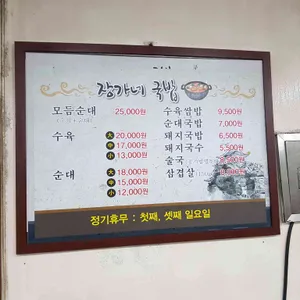 장가네 국밥
모듬순대 25,000원
수육 大 20,000원
中 17,000원
小 13,000원
순대 大 18,000원
中 15,000원
小 12,000원
수육쌈밥 9,500원
순대국밥 7,000원
돼지국밥 6,500원
돼지국수 5,500원
술국
삼겹살
정기휴무 : 첫째, 셋째 일요일